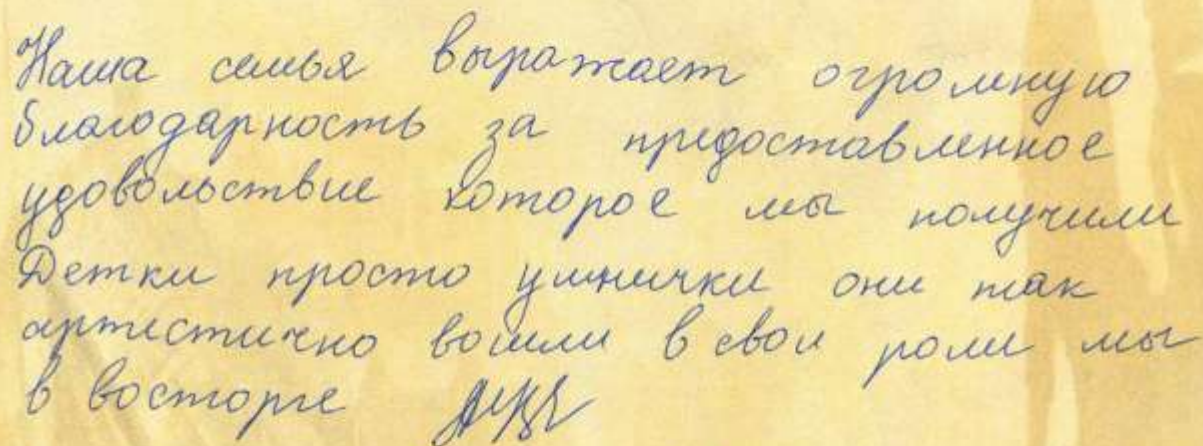 Наша семья выражает огромную
благодарность за предоставленное
удовольствие которое мы получили
Детки просто умнички они так
артистично вошли в свои роли мы
в восторге